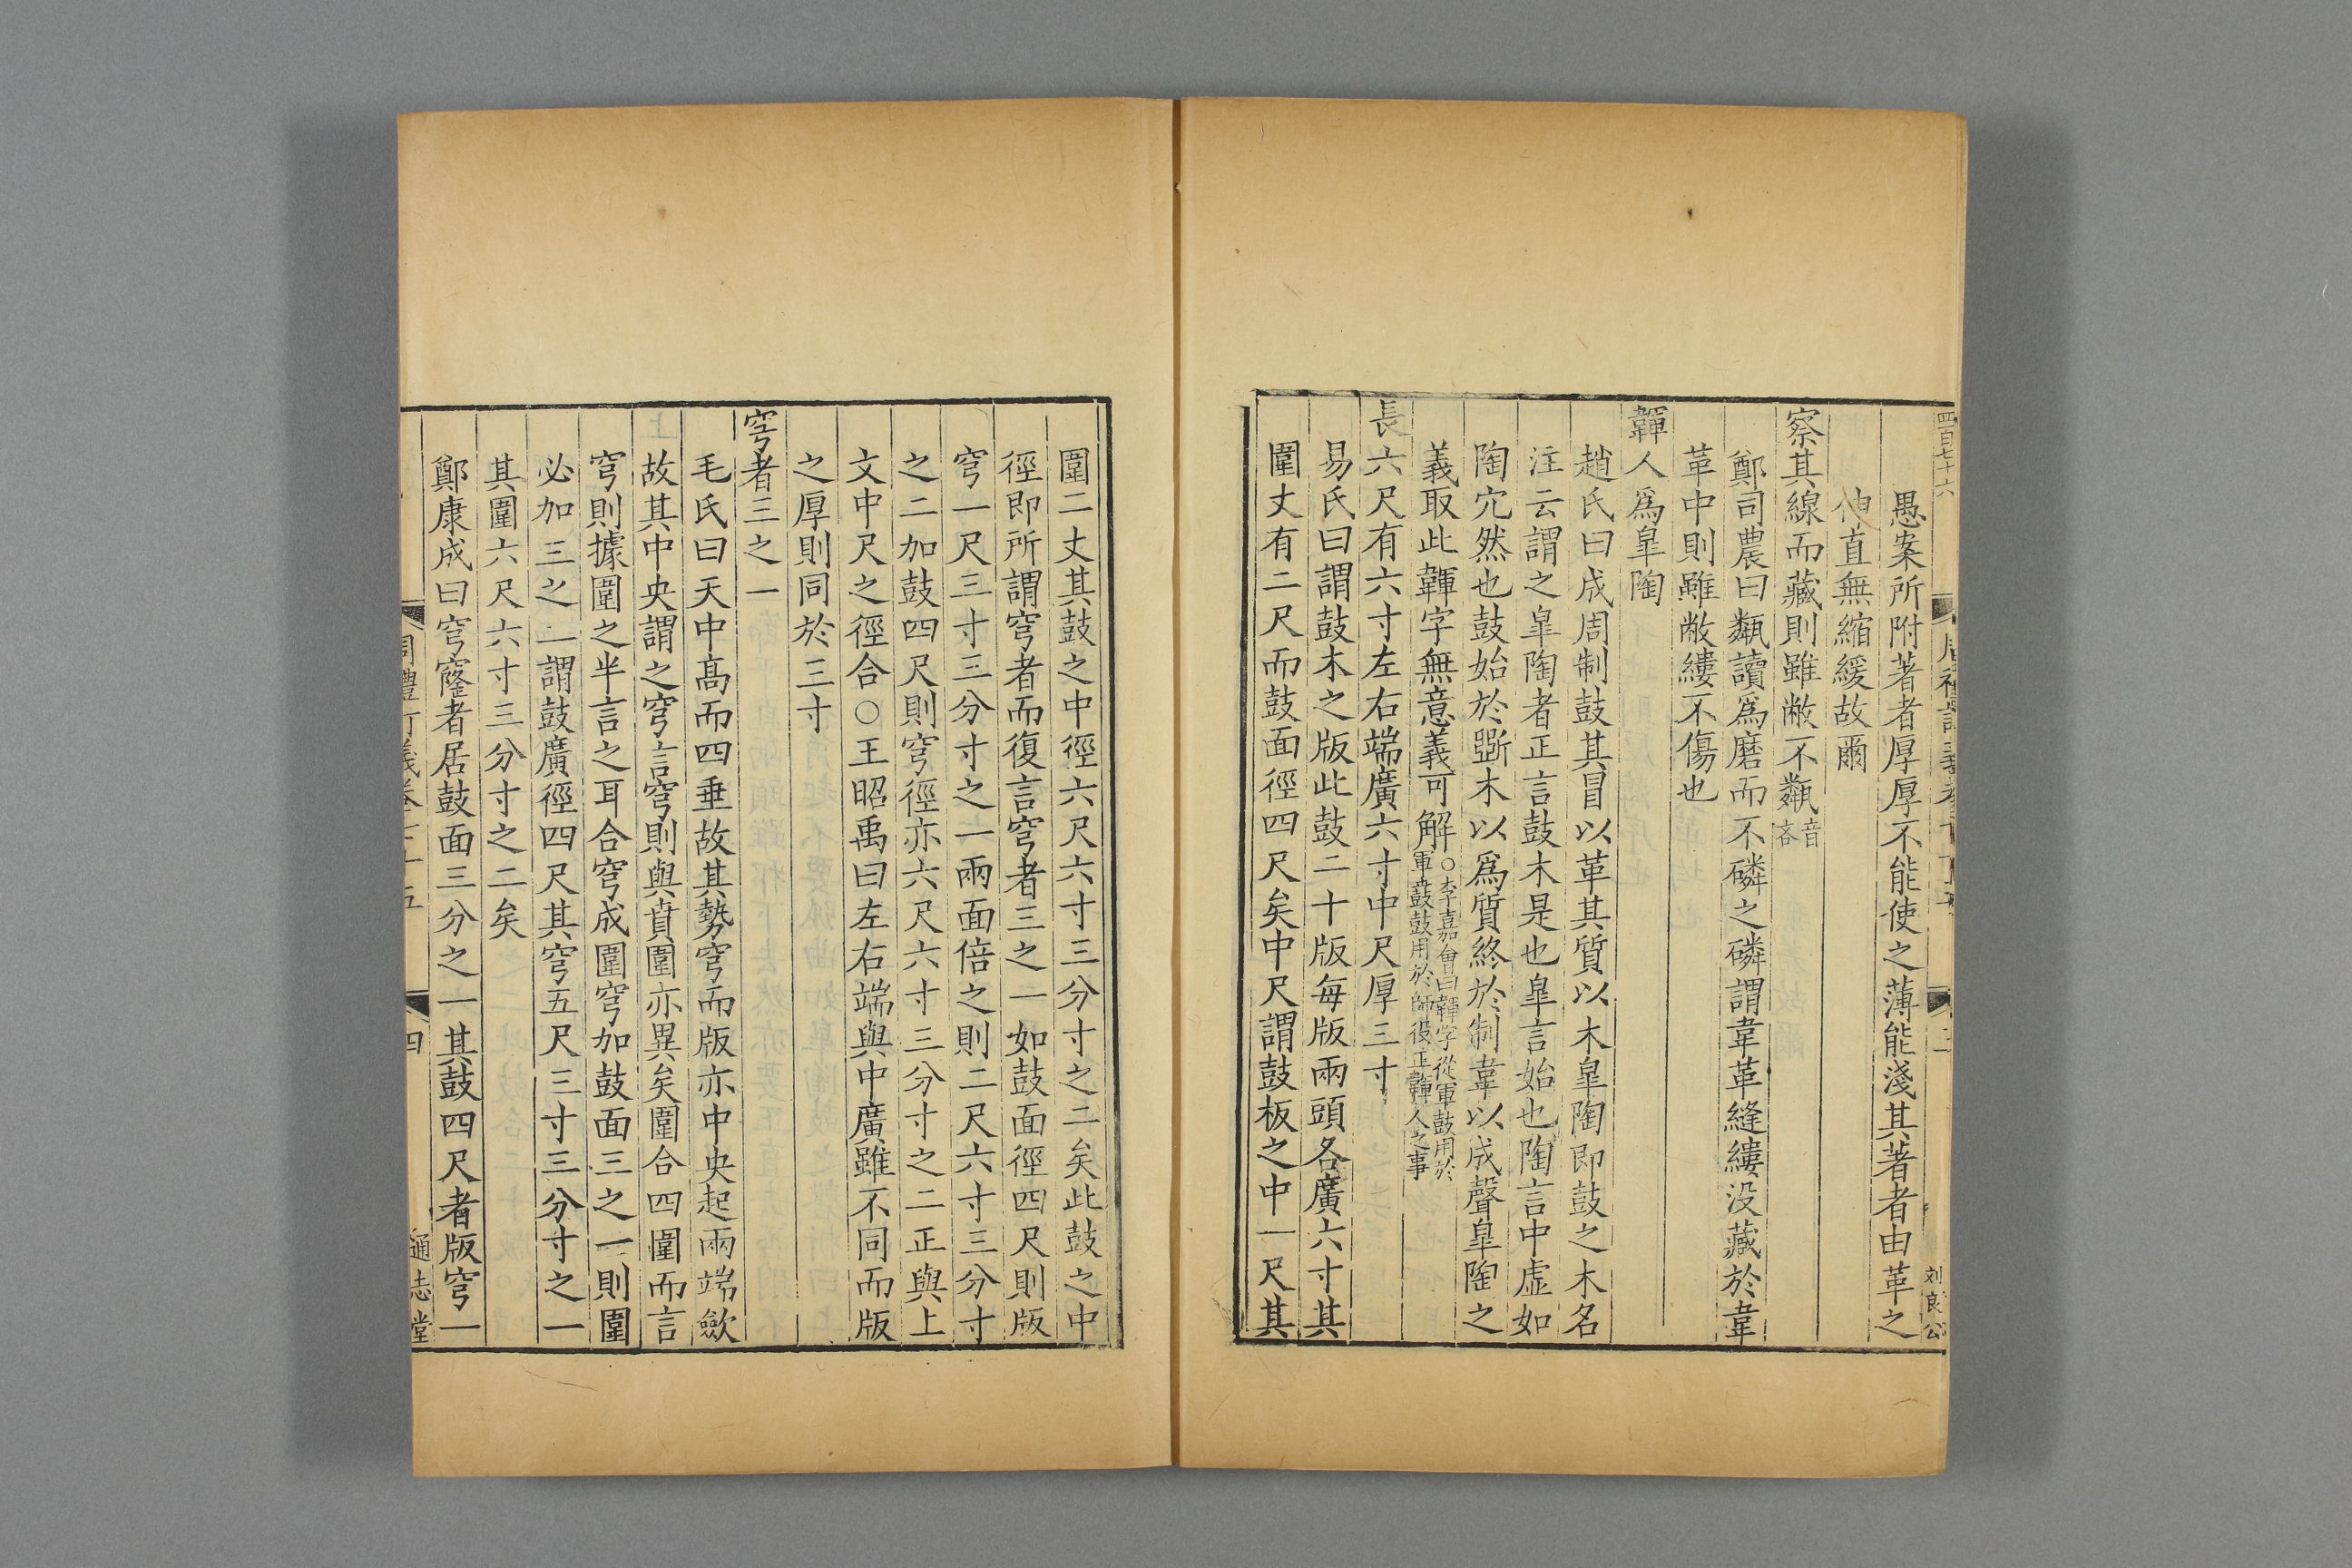 四百七十六
刘良公
愚案所附著者厚厚不能使之薄能淺其著者由革之
伸直無縮緩故爾
察其線而藏則雖敝不甐音吝
鄭司農曰甐讀爲磨而不磷之磷謂韋革縫縷沒藏於韋
革中則雖敝縷不傷也
韗人爲皐陶
趙氏曰成周制鼓其冒以革其質以木皐陶即鼓之木名
注云謂之皐陶者正言鼓木是也皐言始也陶言中虛如
陶穴然也鼓始於斲木以爲質終於制韋以成聲皐陶之
義取此韗字無意義可解○李嘉會曰韗字從軍鼓用於
軍鼖鼓用於師役正韗人之事
長六尺有六寸左右端廣六寸中尺厚三寸
易氏曰謂鼓木之版此鼓二十版每版兩頭各廣六寸其
圍丈有二尺而鼓面徑四尺矣中尺謂鼓板之中一尺其
圍二丈其鼓之中徑六尺六寸三分寸之二矣此鼓之中
徑即所謂穹者而復言穹者三之一如鼓面徑四尺則版
穹一尺三寸三分寸之一兩面倍之則二尺六寸三分寸
之二加鼓四尺則穹徑亦六尺六寸三分寸之二正與上
文中尺之徑合○王昭禹曰左右端與中廣雖不同而版
之厚則同於三寸
穹者三之一
毛氏曰天中髙而四垂故其勢穹而版亦中央起兩端歛
故其中央謂之穹言穹則與賁圍亦異矣圍合四圍而言
穹則據圍之半言之耳合穹成圍穹加鼓面三之一則圍
必加三之一謂鼓廣徑四尺其穹五尺三寸三分寸之一
其圍六尺六寸三分寸之二矣
鄭康成曰穹窿者居鼓面三分之一其鼓四尺者版穹一
周禮訂義卷七十五
四
通志堂